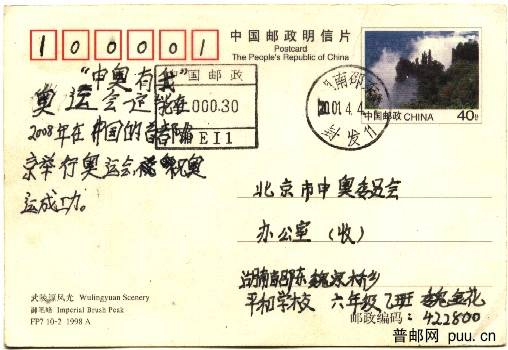 100001
中国邮政明信片
Postcard
The People's Republic of China
中国邮政 CHINA
40分
国邮政
000.30
EI1
2001.4.4
"申奥有我"
奥运会运能在
2008年在中国的首都北
京举行奥运会，祝奥
运成功。
北京市申奥委员会
办公室（收）
湖南邵东魏家桥乡
平和学校 六年级 班 魏金花
邮政编码：422800
武陵源风光 Wulingyuan Scenery
御笔峰 Imperial Brush Peak
FP7 10-2 1998 A
普邮网 puu.cn